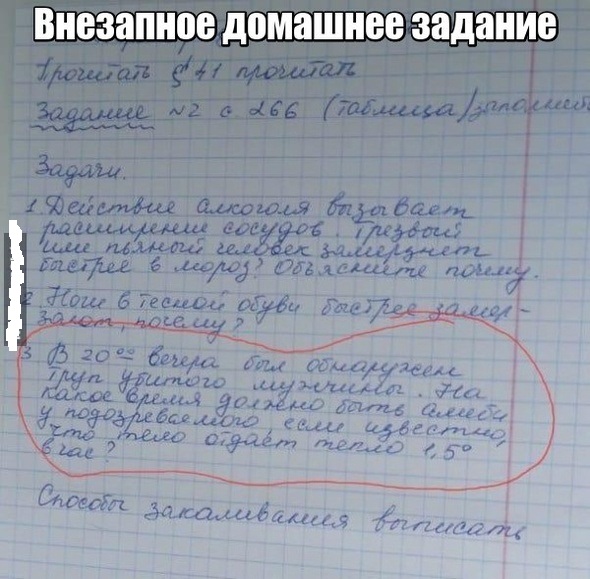 Внезапное домашнее задание
Прочитать § 41 прочитать
Задание №2 с 266 (таблица) заполнить
Задачи.
1. Действие алкоголя вызывает
расширение сосудов. Трезвый
или пьяный человек замерзнет
быстрее в мороз? Объясните почему.
2. Ноги в тесной обуви быстрее замер-
зают, почему?
3. В 20⁰⁰ вечера был обнаружен
труп убитого мужчины. На
какое время должно быть алиби
у подозреваемого, если известно,
что тело отдаёт тепло 1,5°
в час?
Способы закаливания выписать